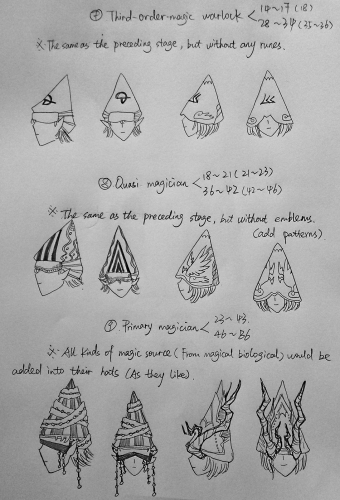 ⑦ Third-order-magic warlock < 14~17 (18)
28~34 (35~36)
※ The same as the preceding stage, but without any runes.
⑧ Quasi magician < 18~21 (21~23)
36~42 (42~46)
※ The same as the preceding stage, but without emblems.
(add patterns).
⑨ Primary magician < 23~43.
46~86
※ All kinds of magic source (From magical biological) would be
added into their hods (As they like).